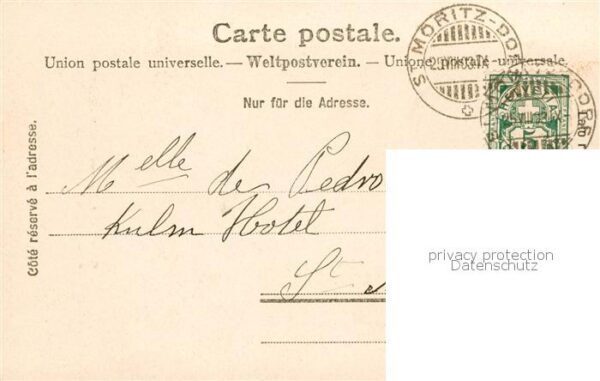 Carte postale.
Union postale universelle. — Weltpostverein. — Unione postale universale.
Nur für die Adresse.
Côté réservé à l'adresse.
ST. MORITZ-DORF
Melle de Pedro
Kulm Hotel
St
privacy protection
Datenschutz